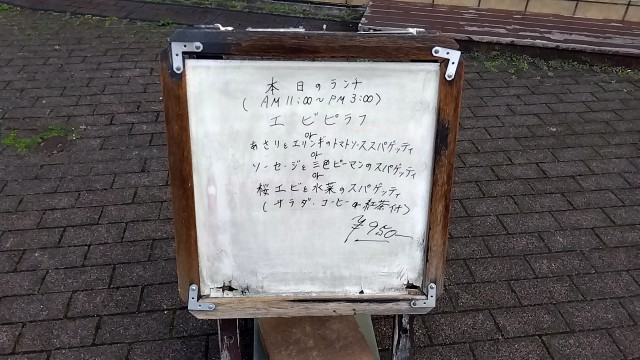 本日のランチ
(AM 11:00〜PM 3:00)
エビピラフ
or
あさりとエリンギのトマトソーススパゲッティ
or
ソーセージと三色ピーマンのスパゲッティ
or
桜エビと水菜のスパゲッティ
(サラダ・コーヒーor紅茶付)
¥950